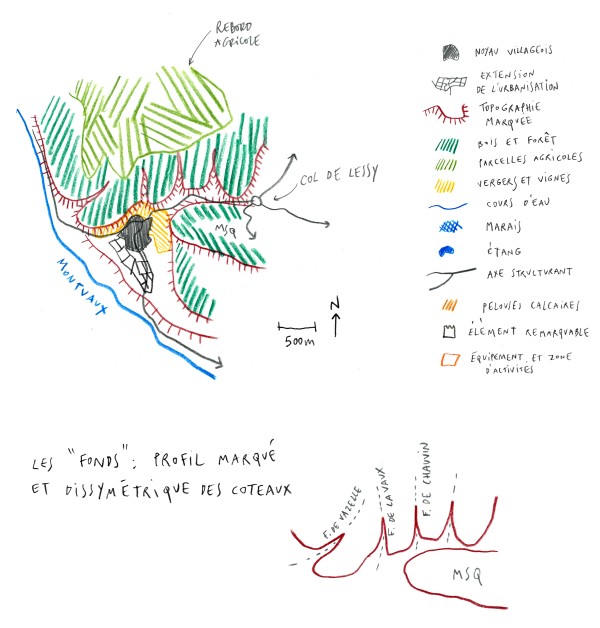 REBORD
AGRICOLE
COL DE LESSY
MSQ
MONTVAUX
N
500m
NOYAU VILLAGEOIS
EXTENSION
DE L'URBANISATION
TOPOGRAPHIE
MARQUEE
BOIS ET FORÊT
PARCELLES AGRICOLES
VERGERS ET VIGNES
COURS D'EAU
MARAIS
ÉTANG
AXE STRUCTURANT
PELOUSES CALCAIRES
ÉLÉMENT REMARQUABLE
ÉQUIPEMENT ET ZONE
D'ACTIVITÉS
LES "FONDS": PROFIL MARQUÉ
ET DISSYMÉTRIQUE DES COTEAUX
F. DE VAZELLE
F. DE LAVAUX
F. DE CHAUVIN
MSQ